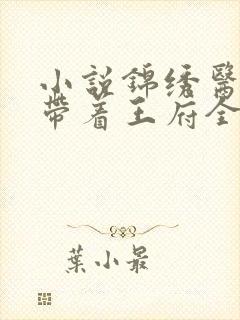 小說錦绣醫
帶着王府全
葉小最